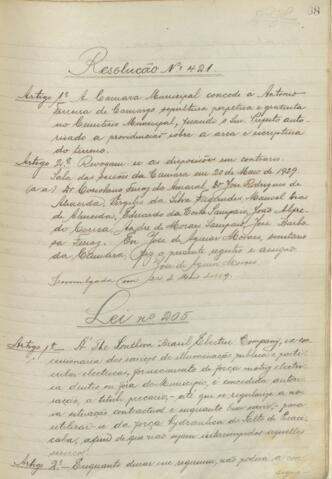 38
Resolução Nº 421
Artigo 1º A Camara Municipal concede á Antonio
Ferreira de Camargo sepultura perpetua e gratuita
no Cemiterio Municipal, ficando o Snr. Prefeito auto-
risado a providenciar sobre a area e escriptura
do terreno.
Artigo 2º Revogam-se as disposições em contrario.
Sala das sessões da Camara em 20 de Maio de 1929.
(a a) Dr. Coriolano Ferraz do Amaral, Dr. José Rodrigues de
Almeida, da Silva Fagundes, Manoel Dias
de Almeida, Eduardo da Costa Sampaio, João Alfre-
do Corrêa, André de Moraes Sampaio, José Barbo-
sa Ferraz. Eu José de Aguiar Moraes, secretario
da Camara, fiz o presente registro e assigno.
José de Aguiar Moraes
Promulgada em de Maio de 1929.
Lei nº 205
Artigo 1º A The Southern Brasil Electric Company, ex-con-
cessionaria dos serviços de illuminação publica e parti-
cular electricas, fornecimento de força motriz electrica
dentro ou fóra do Municipio, é concedida autori-
sação, a titulo precario, até que se regularize a no-
va situação contractual e enquanto bem servir, para
utilizar-se da força hydraulica do Salto de Piraci-
caba, afim de que não sejam interrompidos aquelles
serviços.
Artigo 2º Enquanto durar esse regimen, não poderá a con-